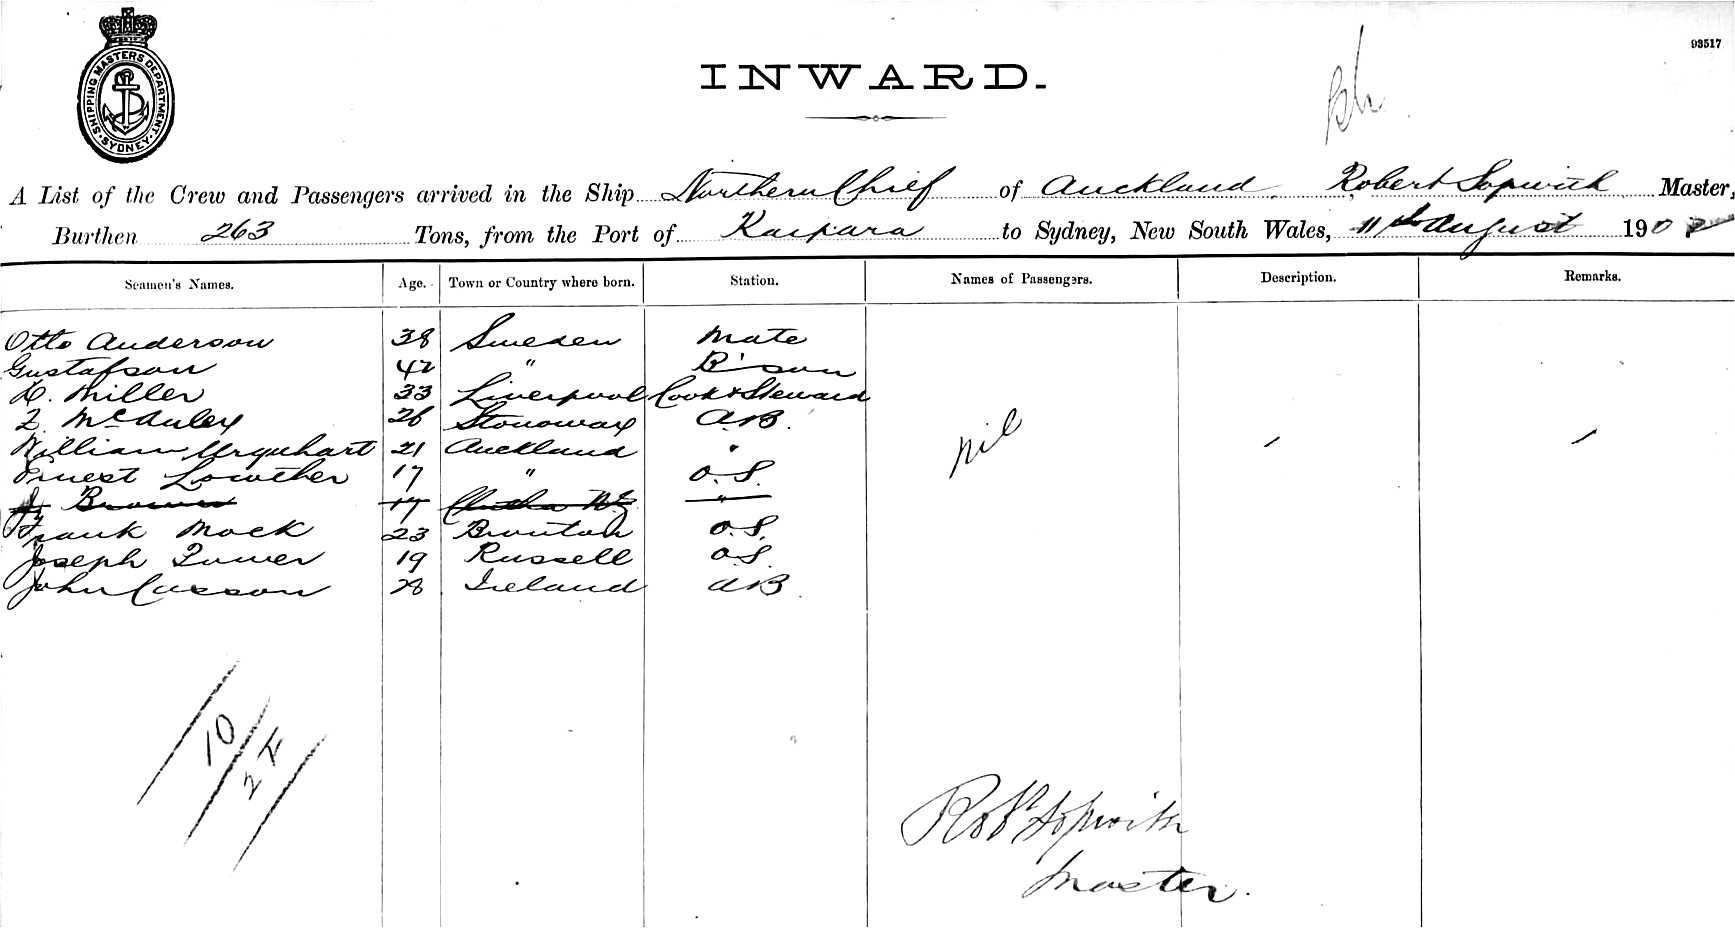 93517
SHIPPING MASTERS DEPARTMENT
SYDNEY
INWARD.
A List of the Crew and Passengers arrived in the Ship Northern Chief of Auckland, Robert Sopwith Master,
Burthen 263 Tons, from the Port of Kaipara to Sydney, New South Wales, 11th August 190
Seamen's Names. Age. Town or Country where born. Station. Names of Passengers. Description. Remarks.
Otto Anderson 38 Sweden Mate
Gustafson 42 " B'son
Miller 33 Liverpool Cook & Steward
McAuley 26 Stonoway AB.
William Urquhart 21 Auckland "
Ernest Lowther 17 " O.S.
Brown 17 "
Frank Mock 23 O.S.
Joseph 19 Russell O.S.
John Casson 28 Ireland AB
nil
10
Robt Sopwith
Master.